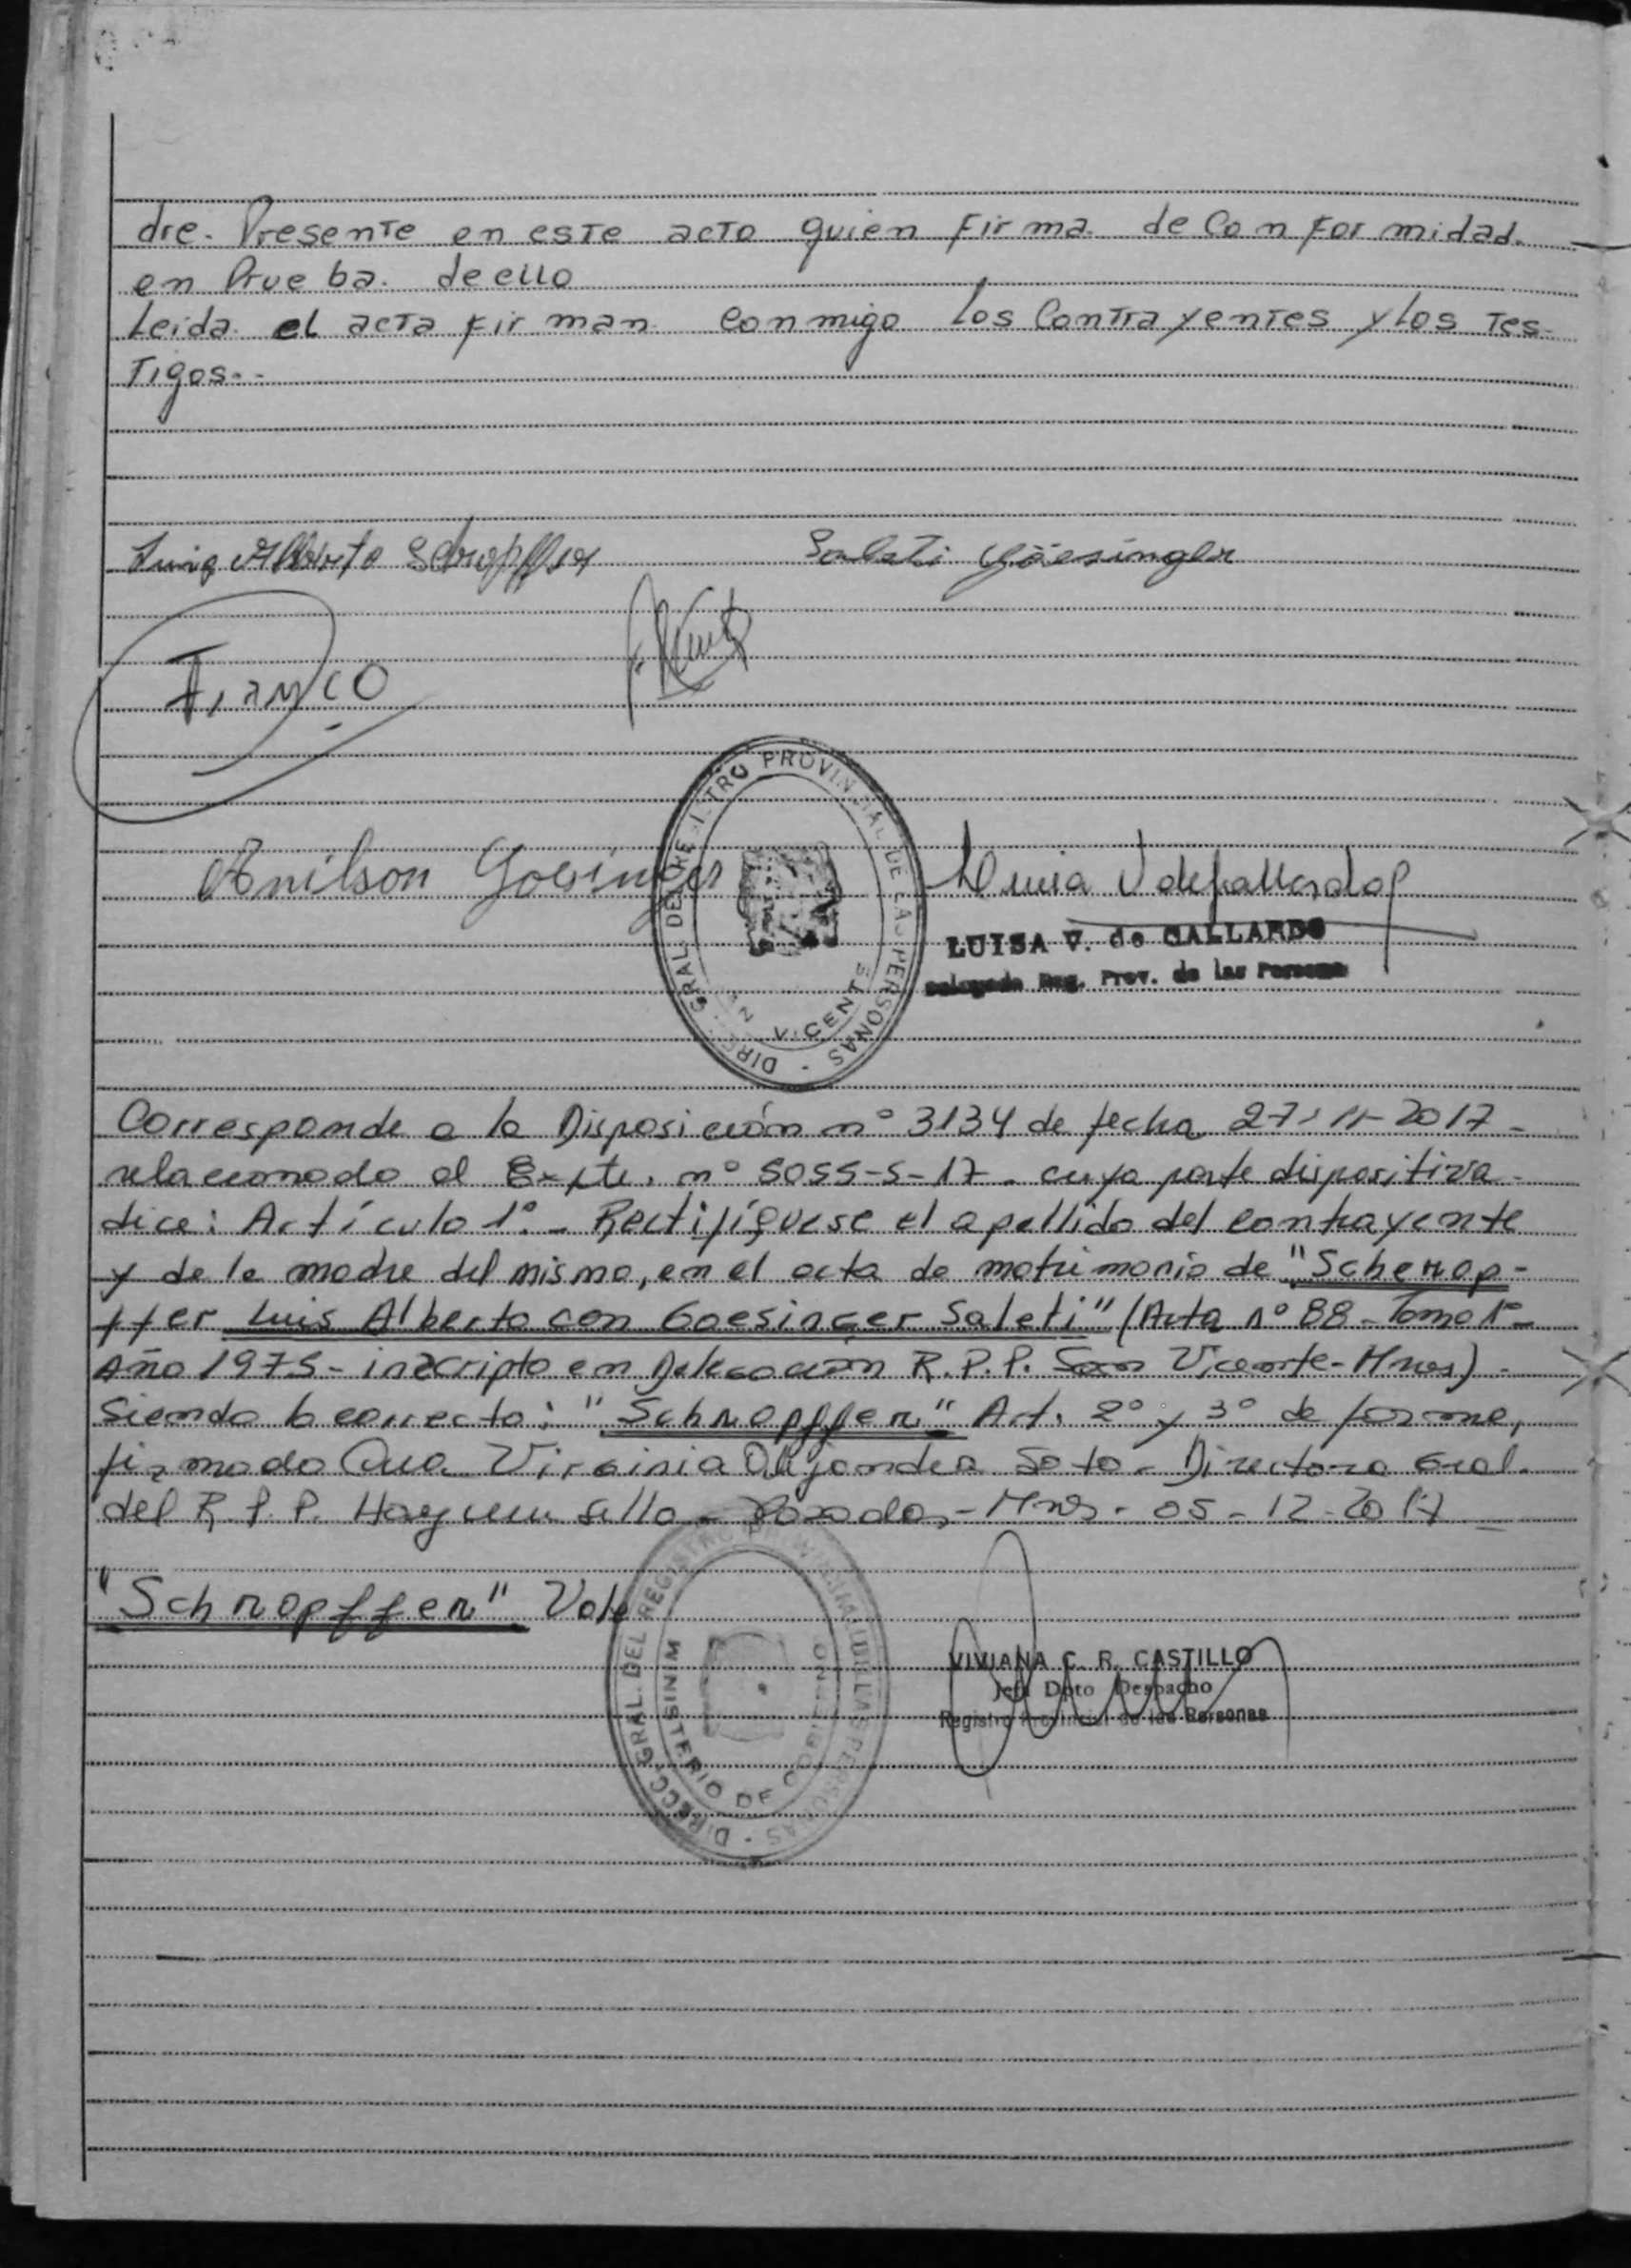 dre. Presente en este acto quien firma de Conformidad.
en Prueba. de ello
Leida el acta firman conmigo los Contrayentes y los Tes-
Tigos.-
Luis Alberto Schropffer
Saleti Goesinger
Franco
Anilson Goesinger
DIREC. GRAL. DEL REGISTRO PROVINCIAL DE LAS PERSONAS
SAN VICENTE
LUISA V. de GALLARDO
Delegada Reg. Prov. de las Personas
Corresponde a la Disposición nº 3134 de fecha 27-11-2017-
relacionado al Expte. nº 5055-S-17. cuya parte dispositiva
dice: Artículo 1º- Rectifíquese el apellido del contrayente
y de la madre del mismo, en el acta de matrimonio de "Scherop-
ffer Luis Alberto con Goesinger Saleti" (Acta nº 88 - Tomo 1º-
Año 1975 - inscripto en Delegación R.P.P. San Vicente-Mnes)-
Siendo lo correcto: "Schropffer" Art. 2º y 3º de forma,
firmado Virginia Alejandra Soto - Directora Gral.
del R.P.P. Hay un sello - Posadas,- Mnes - 05 - 12 - 2017
"Schropffer" Vale
DIRECC. GRAL. DEL REGISTRO PROVINCIAL DE LAS PERSONAS
MINISTERIO DE GOBIERNO
VIVIANA C. R. CASTILLO
Jefa Dpto Despacho
Registro Provincial de las Personas